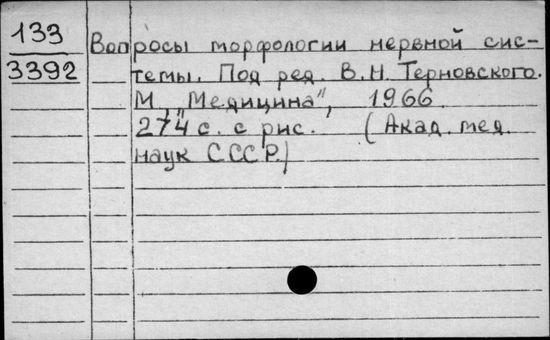 133
3392
Вопросы морфологии нервной сис-
темы. Под ред. В.Н. Терновского.
М., „Медицина", 1966.
274 с. с рис. (Акад. мед.
наук СССР.)